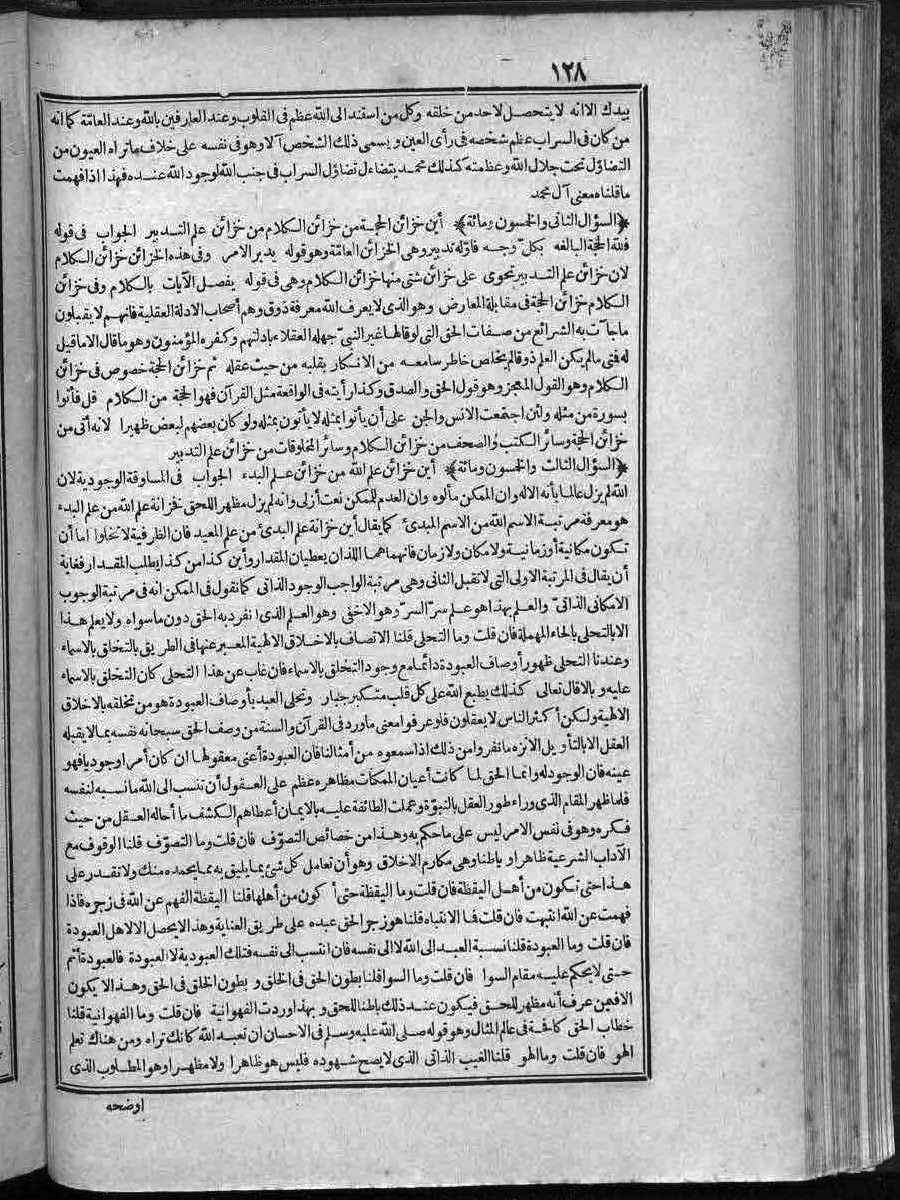 ١٢٨
بيدك الا انه لا يتحصل لاحد من خلقه وكل من استند الى الله عظم فى القلوب وعند العارفين بالله وعند العامّة كما انه
من كان فى السراب عظم شخصه فى رأى العين ويسمى ذلك الشخص آلا وهو فى نفسه على خلاف ما تراه العيون من
التضاؤل تحت جلال الله وعظمته كذلك محمد يتضاءل تضاؤل السراب فى جنب الله لوجود الله عنده فهذا اذا فهمت
ما قلناه معنى آل محمد
﴿السؤال الثانى والخمسون ومائة﴾ أين خزائن الحجة من خزائن الكلام من خزائن علم التدبير الجواب فى قوله
فلله الحجة البالغة بكل وجه فاوّله تدبير وهى الخزائن العامّة وهو قوله يدبر الامر وفى هذه الخزائن خزائن الكلام
لان خزائن علم التدبير تحوى على خزائن شتى منها خزائن الكلام وهى فى قوله يفصل الآيات بالكلام وفى خزائن
الكلام خزائن الحجة فى مقابلة المعارض وهو الذى لا يعرف الله معرفة ذوق وهم أصحاب الادلة العقلية فانهم لا يقبلون
ما جاءت به الشرائع من صفات الحق التى لو قالها غير النبىّ جهله العقلاء بادلتهم وكفره المؤمنون وهو ما قال الا ما قيل
له فتى ما لم يكن العلم ذوقا لم يخلص خاطر سامعه من الانكار بقلبه من حيث عقله ثم خزائن الحجة خصوص فى خزائن
الكلام وهو القول المعجز وهو قول الحق والصدق وكذا رأيته فى الواقعة مثل القرآن فهو الحجة من الكلام قل فأتوا
بسورة من مثله ولئن اجتمعت الانس والجن على أن يأتوا بمثله لا يأتون بمثله ولو كان بعضهم لبعض ظهيرا لانه أتى من
خزائن الحجة وسائر الكتب والصحف من خزائن الكلام وسائر المخلوقات من خزائن علم التدبير
﴿السؤال الثالث والخمسون ومائة﴾ أين خزائن علم الله من خزائن علم البدء الجواب فى المساوقة الوجودية لان
الله لم يزل عالما بأنه الاله وان الممكن مألوه وان العدم للممكن نعت أزلى وانه لم يزل مظهر اللحق نخزانة علم الله من علم البدء
هو معرفة مرتبة الاسم الله من الاسم المبدئ كما يقال أين خزانة علم البدئ من علم المعيد فان الظرفية لا تخلوا اما أن
تكون مكانية أو زمانية ولا مكان ولا زمان فانهما هما اللذان يعطيان المقدار وأين كذا من كذا يطلب المقدار فغاية
أن يقال فى المرتبة الاولى التى لا تقبل الثانى وهى مرتبة الواجب الوجود الذاتى كما نقول فى الممكن انه فى مرتبة الوجوب
الامكانى الذاتىّ والعلم بهذا هو علم سرّ السرّ وهو الاخفى وهو العلم الذى انفرد به الحق دون ما سواه ولا يعلم هذا
الا بالتحلى بالحاء المهملة فان قلت وما التحلى قلنا الاتصاف بالاخلاق الالهية المعبر عنها فى الطريق بالتخلق بالاسماء
وعندنا التحلى ظهور أوصاف العبودة دائما مع وجود التخلق بالاسماء فان غاب عن هذا التحلى كان التخلق بالاسماء
عليه وبالا قال تعالى كذلك يطبع الله على كل قلب متكبر جبار وتحلى العبد بأوصاف العبودة هو من تخلقه بالاخلاق
الالهية ولكن أكثر الناس لا يعقلون فلو عرفوا معنى ما ورد فى القرآن والسنة من وصف الحق سبحانه نفسه بما لا يقبله
العقل الا بالتأويل الانزه ما نفروا من ذلك اذا سمعوه من أمثالنا فان العبودة أعنى معقولها ان كان أمر اوجوديا فهو
عينه فان الوجود له وانما الحق لما كانت أعيان الممكنات مظاهره عظم على العقول أن تنسب الى الله ما نسبه لنفسه
فلما ظهر المقام الذى وراء طور العقل بالنبوّة وعملت الطائفة عليه بالايمان أعطاهم الكشف ما أحاله العقل من حيث
فكره وهو فى نفس الامر ليس على ما حكم به وهذا من خصائص التصوّف فان قلت وما التصوّف قلنا الوقوف مع
الآداب الشرعية ظاهرا وباطنا وهى مكارم الاخلاق وهو أن تعامل كل شئ بما يليق به مما يحمده منك ولا تقدر على
هذا حتى تكون من أهل اليقظة فان قلت وما اليقظة حتى أكون من أهلها قلنا اليقظة الفهم عن الله فى زجره فاذا
فهمت عن الله انتبهت فان قلت فما الانتباه قلنا هو زجر الحق عبده على طريق العناية وهذا لا يحصل الا لاهل العبودة
فان قلت وما العبودة قلنا نسبة العبد الى الله لا الى نفسه فان انتسب الى نفسه فتلك العبودية لا العبودة فالعبودة أتم
حتى لا يحكم عليه مقام السوا فان قلت وما السوا قلنا بطون الحق فى الخلق وبطون الخلق فى الحق وهذا لا يكون
الا فيمن عرف أنه مظهر للحق فيكون عند ذلك باطنا للحق وبهذا وردت الفهوانية فان قلت وما الفهوانية قلنا
خطاب الحق كافحة فى عالم المثال وهو قوله صلى الله عليه وسلم فى الاحسان ان تعبد الله كانك تراه ومن هناك تعلم
الهو فان قلت وما الهو قلنا الغيب الذاتى الذى لا يصح شهوده فليس هو ظاهرا ولا مظهرا وهو المطلوب الذى
اوضحه